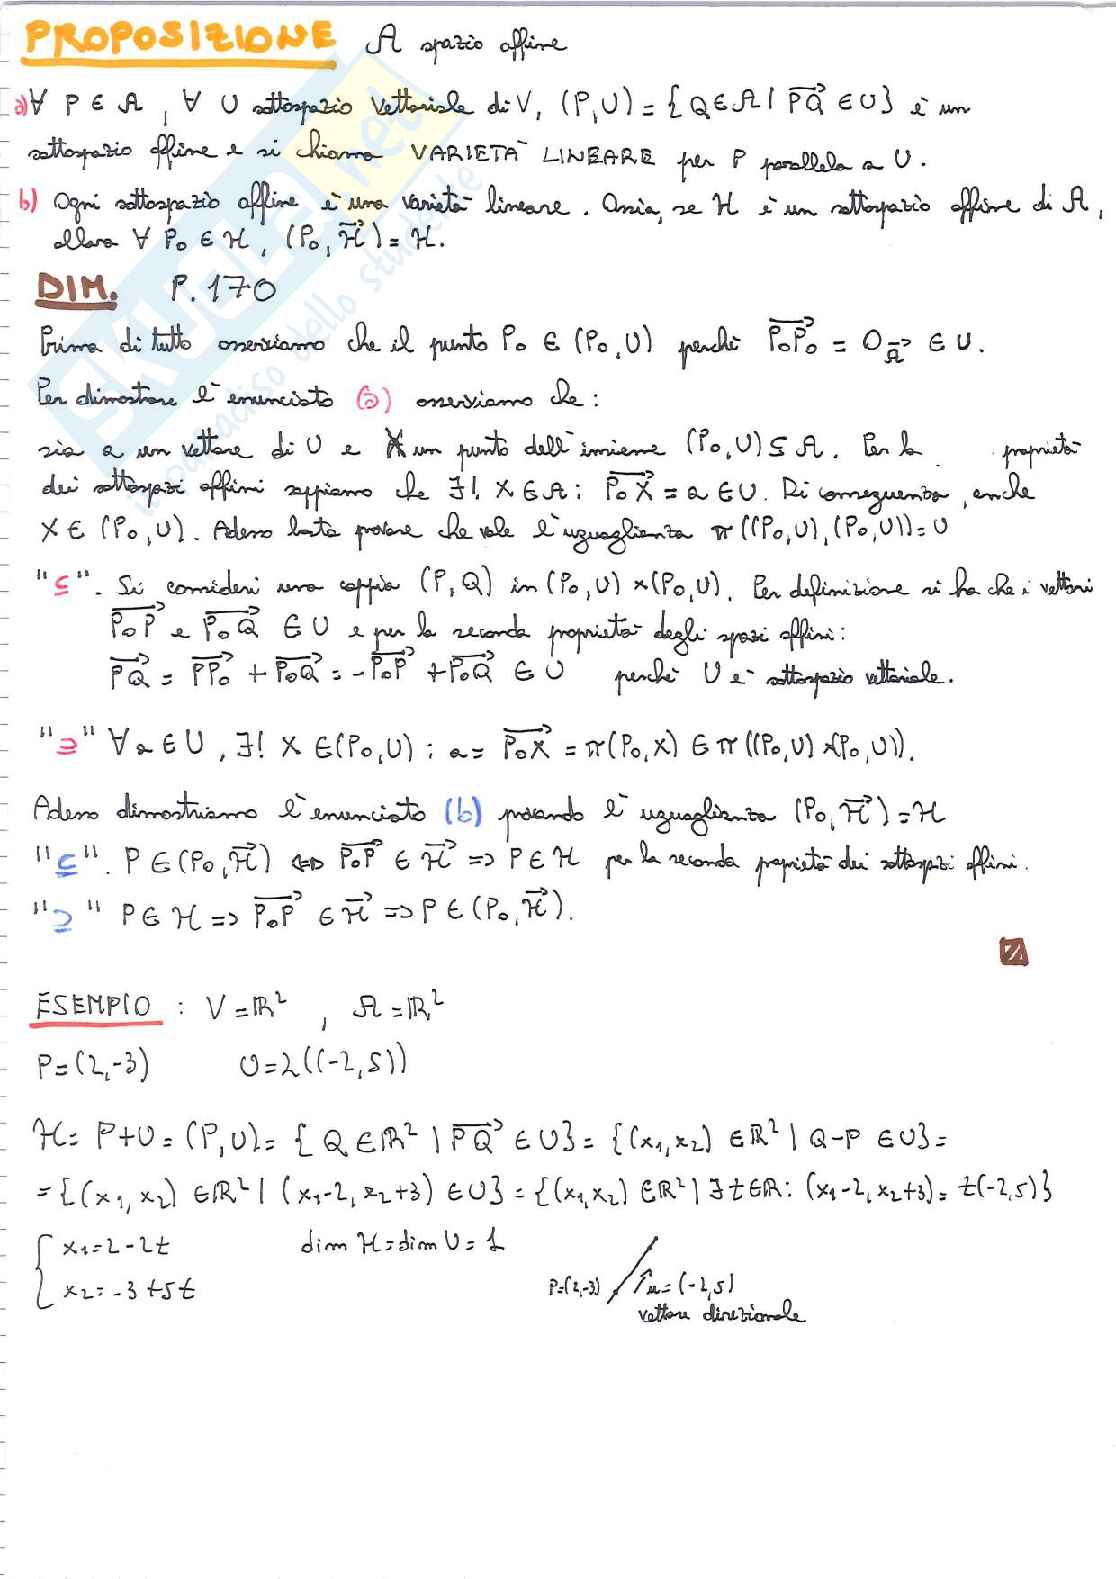 PROPOSIZIONE A spazio affine
a) ∀ P ∈ A, ∀ U sottospazio vettoriale di V, (P,U) = {Q ∈ A | PQ→ ∈ U} è un
sottospazio affine e si chiama VARIETÀ LINEARE per P parallela a U.
b) Ogni sottospazio affine è una varietà lineare. Ossia, se H è un sottospazio affine di A,
allora ∀ P₀ ∈ H, (P₀, H→) = H.
DIM. P.170
Prima di tutto osserviamo che il punto P₀ ∈ (P₀,U) perché P₀P₀→ = 0_A→ ∈ U.
Per dimostrare l'enunciato (a) osserviamo che:
sia a un vettore di U e X un punto dell'insieme (P₀,U) ⊆ A. Per la proprietà
dei sottospazi affini sappiamo che ∃! X ∈ A : P₀X→ = a ∈ U. Di conseguenza, anche
X ∈ (P₀,U). Adesso basta provare che vale l'uguaglianza π((P₀,U),(P₀,U)) = U
"⊆". Si consideri una coppia (P,Q) in (P₀,U)×(P₀,U). Per definizione si ha che i vettori
P₀P→ e P₀Q→ ∈ U e per la seconda proprietà degli spazi affini:
PQ→ = PP₀→ + P₀Q→ = -P₀P→ + P₀Q→ ∈ U perché U è sottospazio vettoriale.
"⊇" ∀ a ∈ U, ∃! X ∈ (P₀,U) : a = P₀X→ = π(P₀,X) ∈ π((P₀,U)×(P₀,U)).
Adesso dimostriamo l'enunciato (b) provando l'uguaglianza (P₀,H→) = H
"⊆". P ∈ (P₀,H→) ⇔ P₀P→ ∈ H→ ⇒ P ∈ H per la seconda proprietà dei sottospazi affini.
"⊇" P ∈ H ⇒ P₀P→ ∈ H→ ⇒ P ∈ (P₀,H→).
ESEMPIO : V = ℝ² , A = ℝ²
P = (2,-3) U = L((-2,5))
H = P+U = (P,U) = {Q ∈ ℝ² | PQ→ ∈ U} = {(x₁,x₂) ∈ ℝ² | Q-P ∈ U} =
= {(x₁,x₂) ∈ ℝ² | (x₁-2, x₂+3) ∈ U} = {(x₁,x₂) ∈ ℝ² | ∃ t ∈ ℝ : (x₁-2, x₂+3) = t(-2,5)}
{ x₁ = 2-2t dim H = dim U = 1
x₂ = -3+5t P=(2,-3) u=(-2,5)
vettore direzionale
SKUOLA.net
il paradiso dello studente